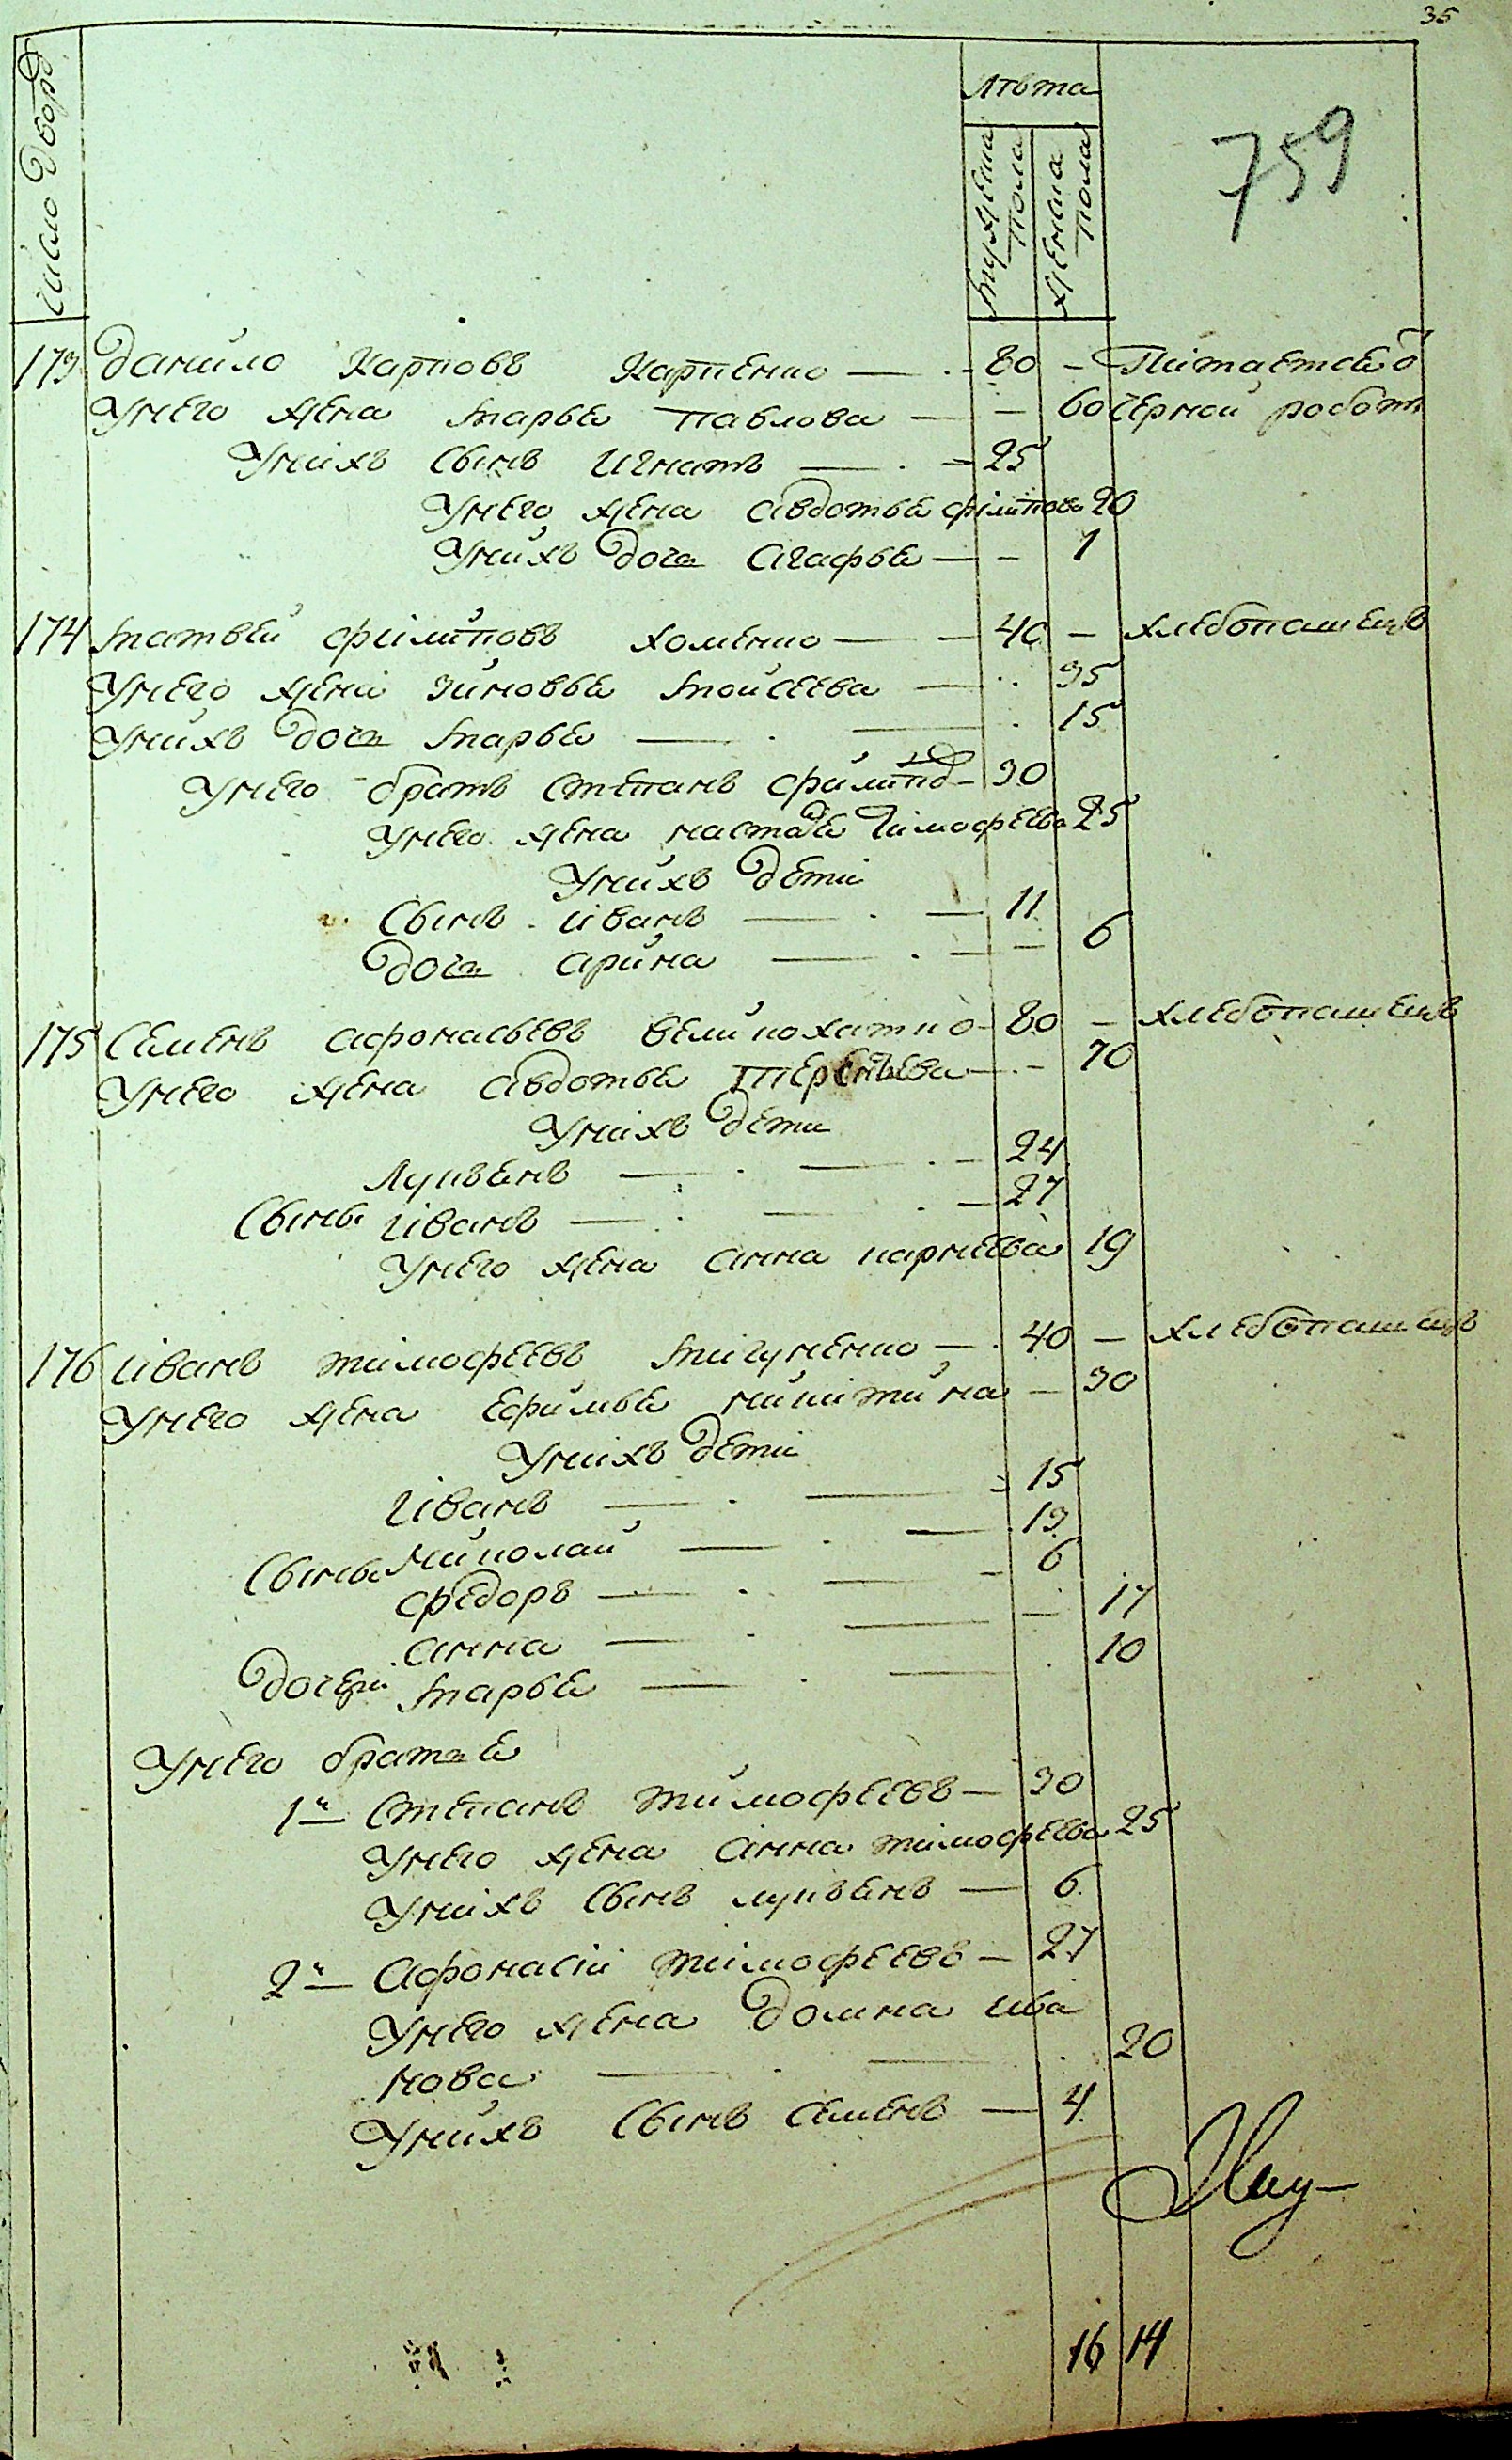 35
Число дворо
Лѣта
мужеска пола
женска пола
759
173 Данило Карповъ Карпенко — 80 — Питаетсея
Унего жена Марья Павлова — — 60 черной работ
Унихъ сынъ Игнатъ — 25
Унего жена Авдотья Филипова 20
Унихъ доча Агафья — — 1
174 Матвей Филиповъ Хоменко — 40 — хлебопашецъ
Унего жена Зиновья Моисеева — 35
Унихъ доча Марья — 15
Унего братъ Степанъ Филипов — 30
Унего жена Настася Тимофеева 25
Унихъ дети
Сынъ Иванъ — 11
доча Арина — — 6
175 Семенъ Афонасьевъ Великохатко — 80 — хлебопашецъ
Унего жена Авдотья Терентьева — 70
Унихъ дети
Лукьянъ — 24
Сыны Иванъ — 27
Унего жена Анна Карнеева 19
176 Иванъ Тимофеевъ Мигуненко — 40 — хлебопашецъ
Унего жена Ефимья Никитина — 30
Унихъ дети
Иванъ — 15
Сыны Николай — 13
Федоръ — 6
Анна — 17
дочери Марья — 10
Унего братья
1й Степанъ Тимофеевъ — 30
Унего жена Анна Тимофеева 25
Унихъ сынъ Лукьянъ — 6
2й Афонасій Тимофеевъ — 27
Унего жена Домна Ива
нова — 20
Унихъ сынъ Семенъ — 4
16 14